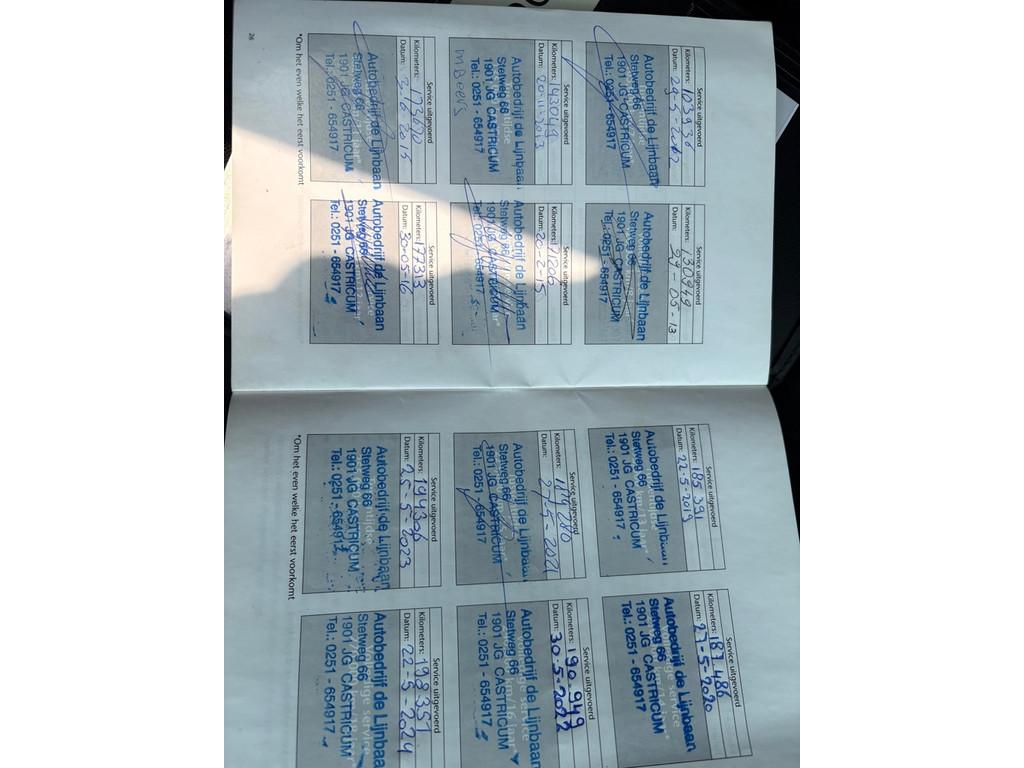 Service uitgevoerd
Kilometers: 103936
Datum: 29-5-2012
Autobedrijf de Lijnbaan
Stetweg 66
1901 JG CASTRICUM
Tel.: 0251 - 654917
Service uitgevoerd
Kilometers: 130949
Datum: 29-05-13
Autobedrijf de Lijnbaan
Stetweg 66
1901 JG CASTRICUM
Tel.: 0251 - 654917
Service uitgevoerd
Kilometers: 143049
Datum: 20-11-2013
Autobedrijf de Lijnbaan
Stetweg 66
1901 JG CASTRICUM
Tel.: 0251 - 654917
Service uitgevoerd
Kilometers: 171206
Datum: 20-2-15
Autobedrijf de Lijnbaan
Stetweg 66
1901 JG CASTRICUM
Tel.: 0251 - 654917
Service uitgevoerd
Kilometers:
Datum: 3-6-2015
Autobedrijf de Lijnbaan
Stetweg 66
1901 JG CASTRICUM
Tel.: 0251 - 654917
Service uitgevoerd
Kilometers: 177313
Datum: 30-05-16
Autobedrijf de Lijnbaan
Stetweg 66
1901 JG CASTRICUM
Tel.: 0251 - 654917
*Om het even welke het eerst voorkomt
26
Service uitgevoerd
Kilometers: 185391
Datum: 22-5-2019
Autobedrijf de Lijnbaan
Stetweg 66
1901 JG CASTRICUM
Tel.: 0251 - 654917
Service uitgevoerd
Kilometers: 187486
Datum: 27-5-2020
Autobedrijf de Lijnbaan
Stetweg 66
1901 JG CASTRICUM
Tel.: 0251 - 654917
Service uitgevoerd
Kilometers:
Datum: 27-5-2021
Autobedrijf de Lijnbaan
Stetweg 66
1901 JG CASTRICUM
Tel.: 0251 - 654917
Service uitgevoerd
Kilometers: 190949
Datum: 30-5-2022
Autobedrijf de Lijnbaan
Stetweg 66
1901 JG CASTRICUM
Tel.: 0251 - 654917
Service uitgevoerd
Kilometers: 194336
Datum: 25-5-2023
Autobedrijf de Lijnbaan
Stetweg 66
1901 JG CASTRICUM
Tel.: 0251 - 654917
Service uitgevoerd
Kilometers: 198351
Datum: 22-5-2024
Autobedrijf de Lijnbaan
Stetweg 66
1901 JG CASTRICUM
Tel.: 0251 - 654917
*Om het even welke het eerst voorkomt